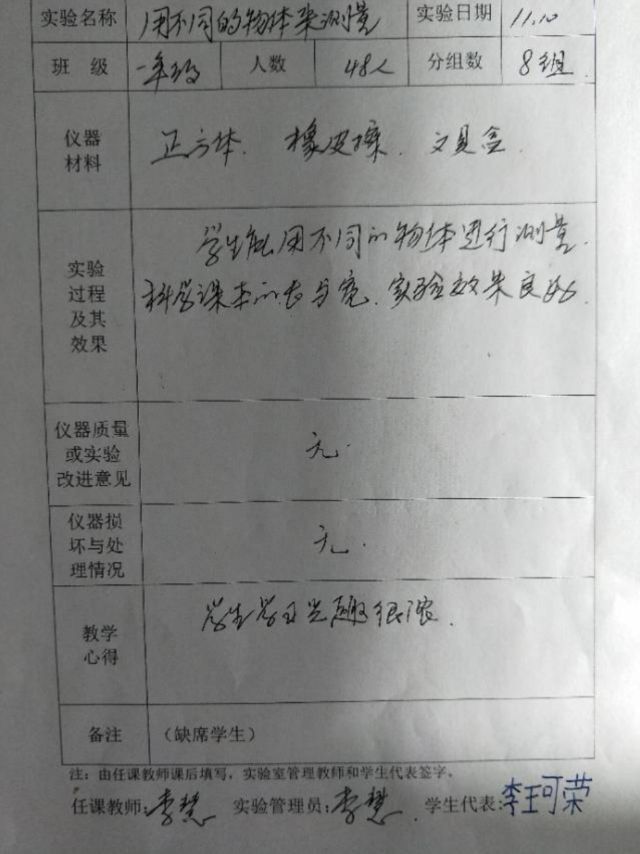 实验名称 用不同的物体来测量 实验日期 11.10
班 级 一年级 人数 48人 分组数 8组
仪器
材料
正方体. 橡皮擦. 文具盒.
实验
过程
及其
效果
学生能用不同的物体进行测量
科学课本的长与宽.实验效果良好.
仪器质量
或实验
改进意见
无.
仪器损
坏与处
理情况
无.
教学
心得
学生学习兴趣很浓.
备注 （缺席学生）
注：由任课教师课后填写，实验室管理教师和学生代表签字。
任课教师:李慧 实验管理员:李慧 学生代表:李珏荣